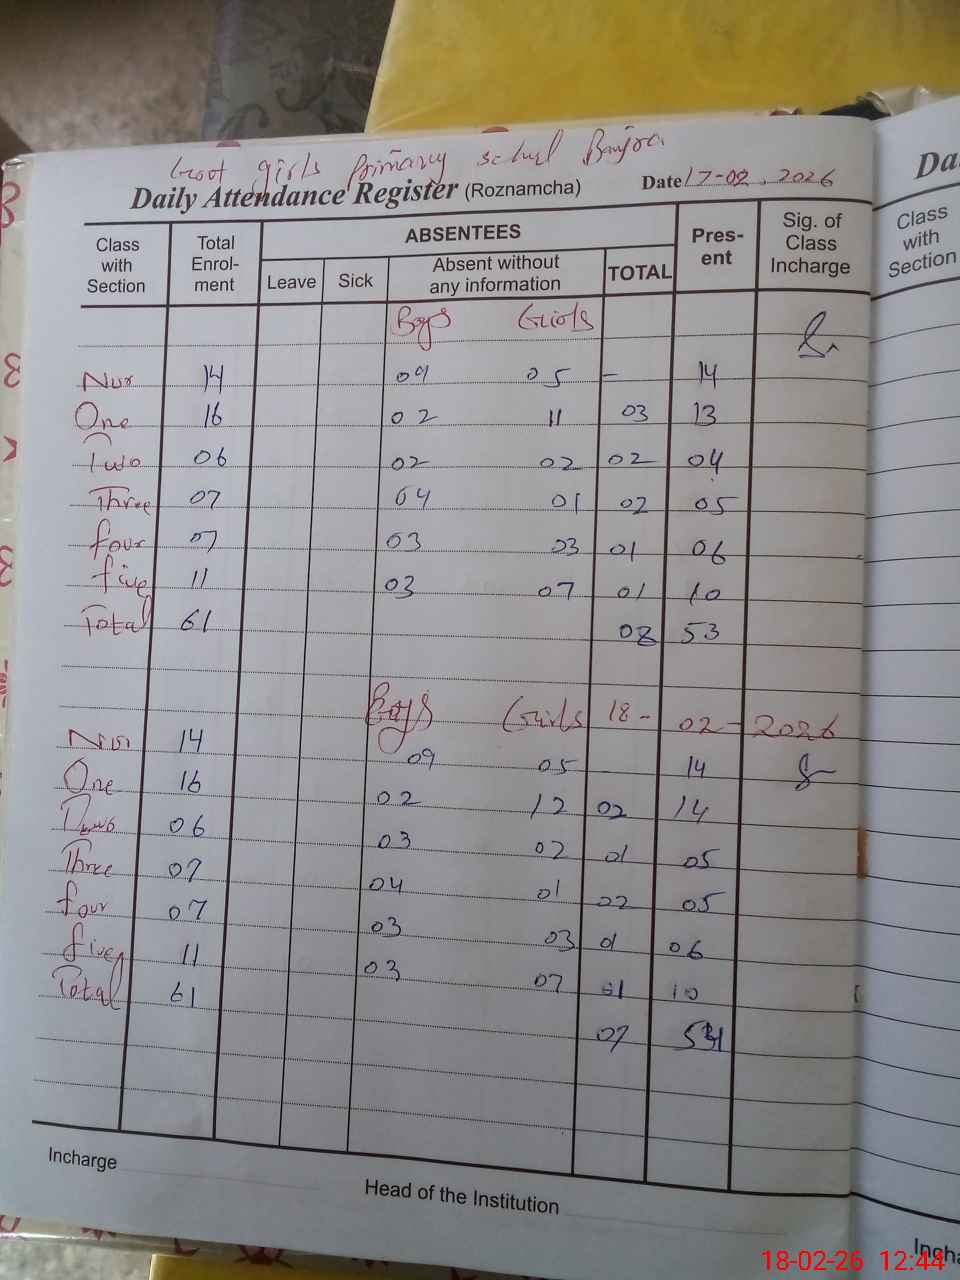 Govt girls Primary school Banjra
Daily Attendance Register (Roznamcha) Date 17-02.2026
Class with Section Total Enrolment ABSENTEES Leave Sick Absent without any information TOTAL Present Sig. of Class Incharge
Boys Girls
Nur 14 09 05 - 14
One 16 02 11 03 13
Two 06 02 02 02 04
Three 07 04 01 02 05
four 07 03 03 01 06
five 11 03 07 01 10
Total 61 08 53
Boys Girls 18-02-2026
Nur 14 09 05 14
One 16 02 12 02 14
Two 06 03 02 01 05
Three 07 04 01 02 05
four 07 03 03 01 06
five 11 03 07 01 10
Total 61 07
Incharge
Head of the Institution
Class
with
Section
18-02-26 12:44